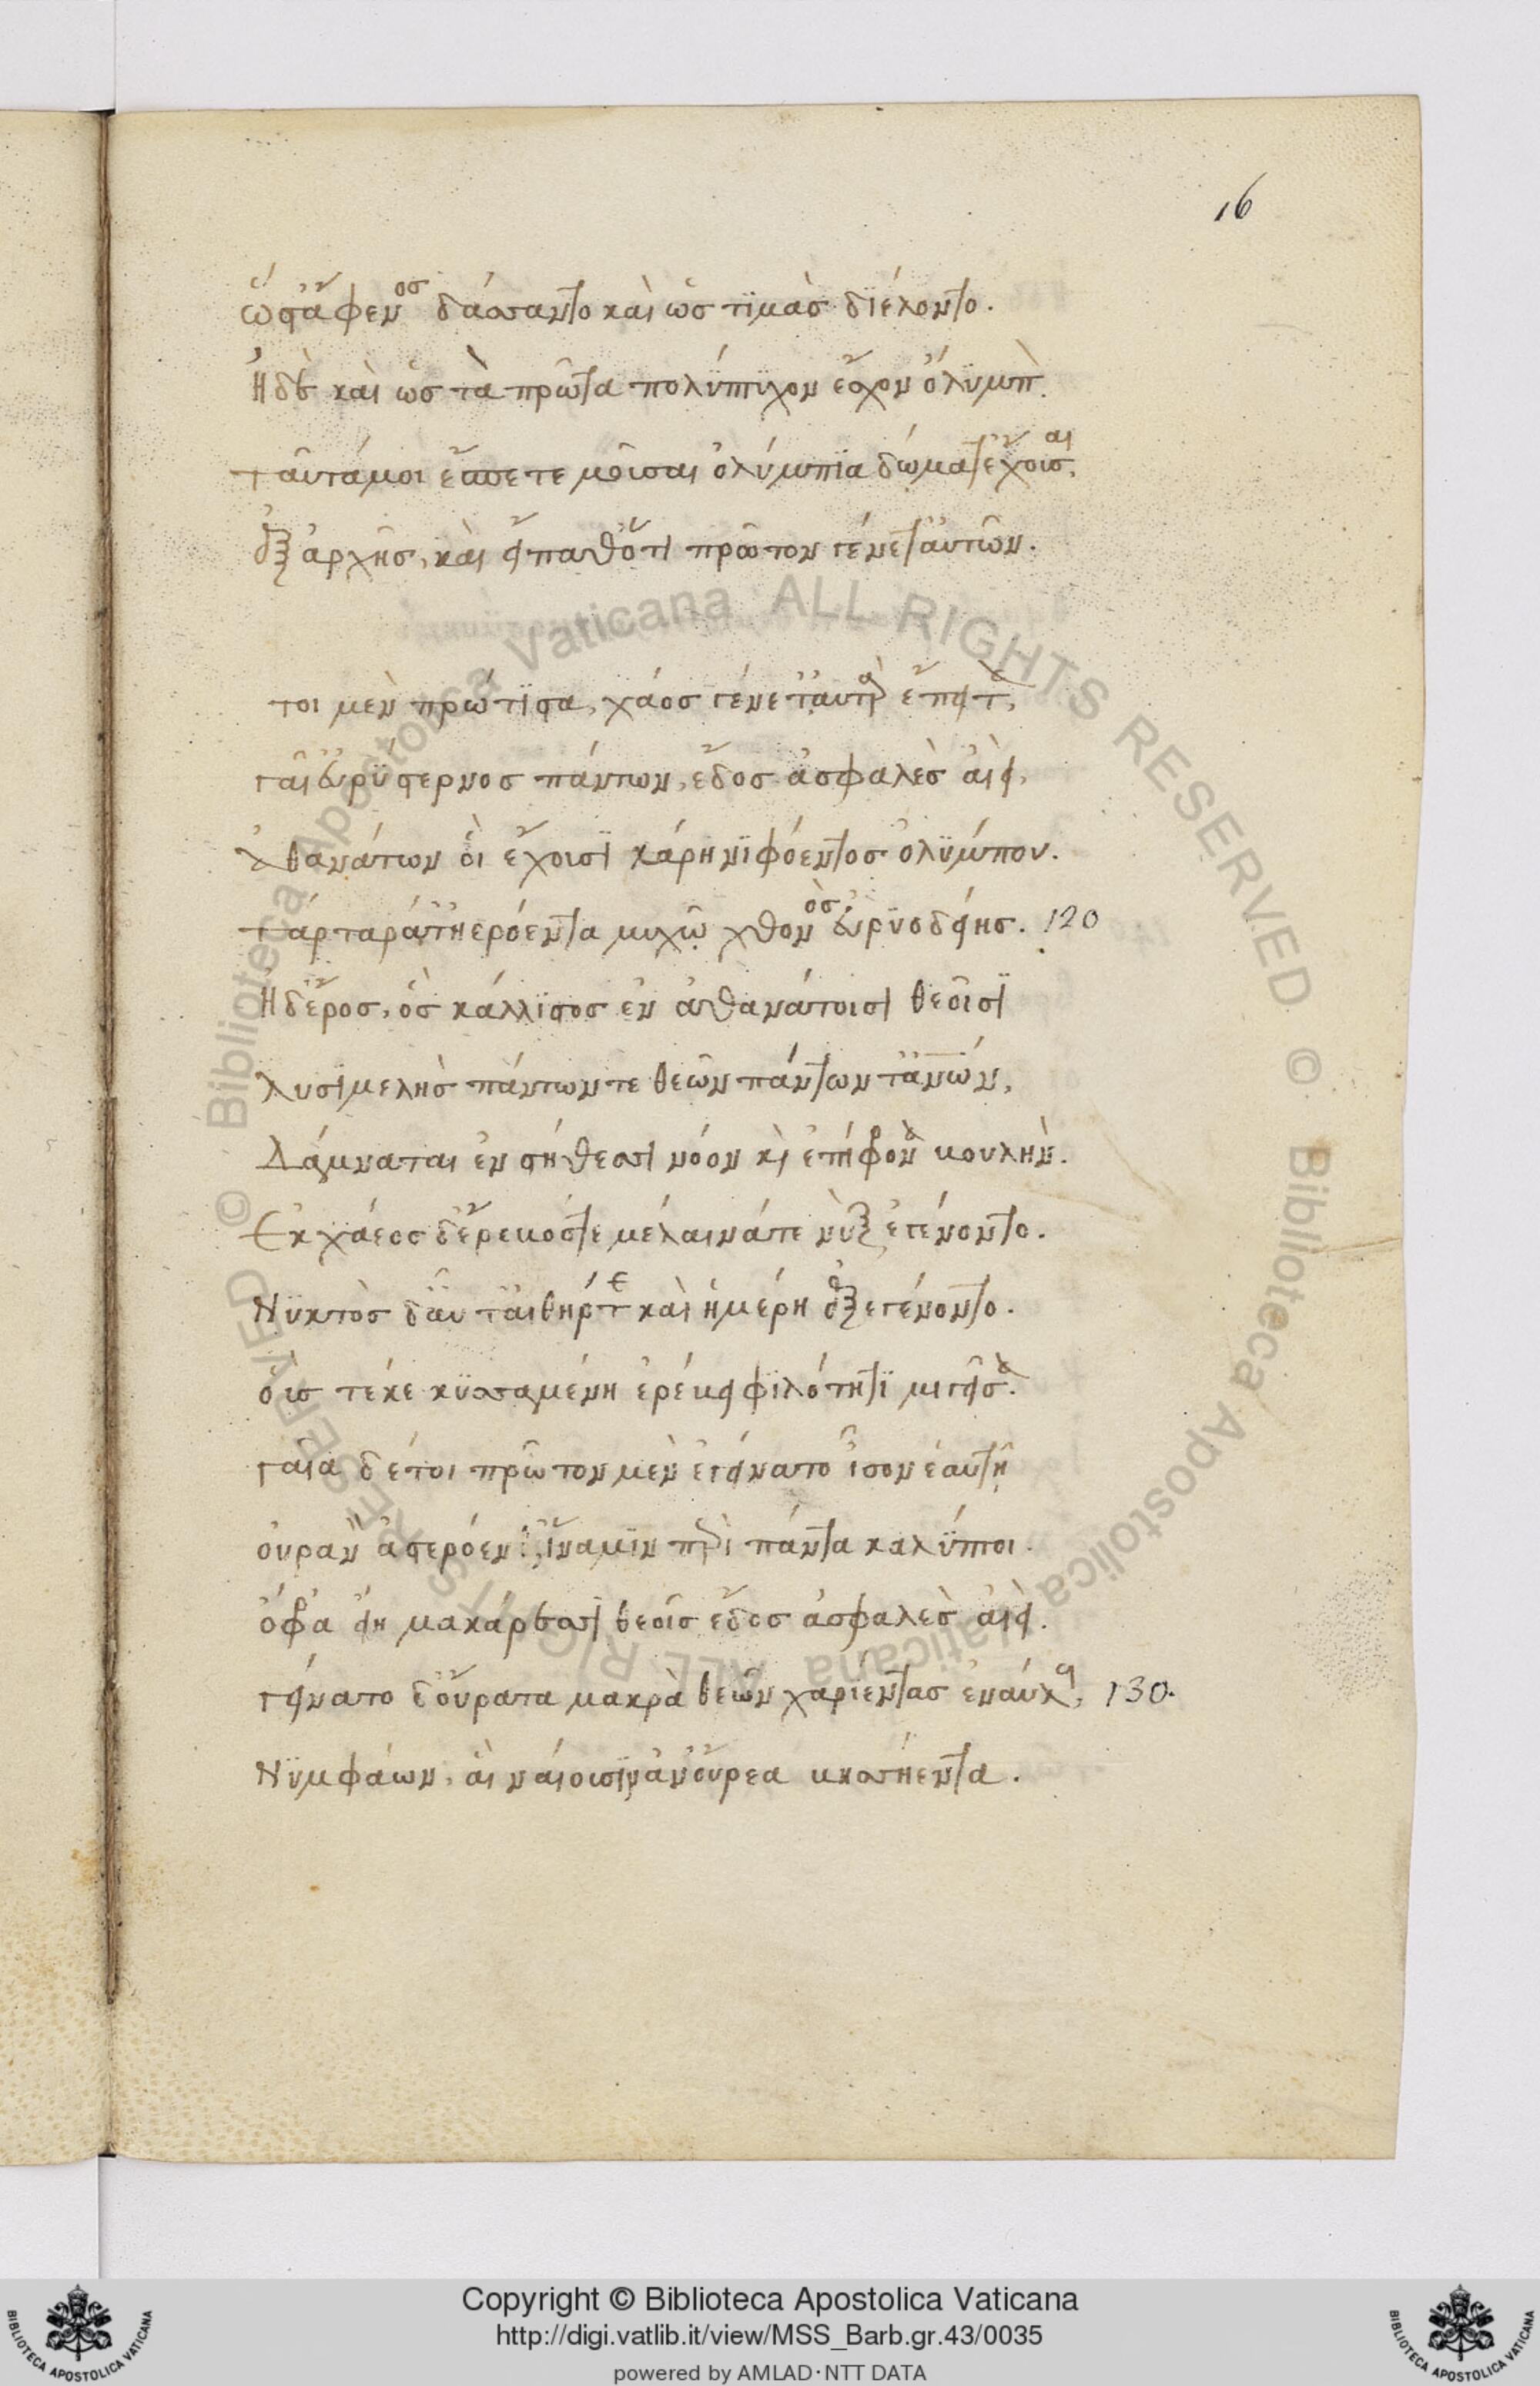 16
ὥστ' ἄφενος δάσσαντο καὶ ὡς τιμὰς διέλοντο.
Ἠδὲ καὶ ὡς τὰ πρῶτα πολύπτυχον ἔσχον ὄλυμπ.
ταῦτά μοι ἔσπετε μοῦσαι ὀλύμπια δώματ' ἔχουσαι,
ἐξ ἀρχῆς, καὶ εἴπαθ' ὅτι πρῶτον γένετ' αὐτῶν.
τοι μὲν πρώτιστα, χάος γένετ' αὐτὰρ ἔπειτα,
γαῖ' εὐρύστερνος πάντων, ἕδος ἀσφαλὲς αἰεὶ,
ἀθανάτων οἳ ἔχουσι κάρη νιφόεντος ὀλύμπου.
τάρταρά τ' ἠερόεντα μυχῷ χθονὸς εὐρυοδείης. 120
Ἠδ' ἔρος, ὃς κάλλιστος ἐν ἀθανάτοισι θεοῖσι
λυσιμελὴς πάντων τε θεῶν πάντων τ' ἀνων,
Δάμναται ἐν στήθεσσι νόον καὶ ἐπίφρονα βουλὴν.
Ἐκ χάεος δ' ἔρεβός τε μέλαινά τε νὺξ ἐγένοντο.
Νυκτὸς δ' αὖτ' αἰθήρ τε καὶ ἡμέρη ἐξεγένοντο.
οὓς τέκε κυσσαμένη ἐρέβει φιλότητι μιγεῖσα.
γαῖα δέ τοι πρῶτον μὲν ἐγείνατο ἶσον ἑαυτῇ
οὐρανὸν ἀστερόεντ', ἵνα μιν περὶ πάντα καλύπτοι.
ὄφρα εἴη μακάρεσσι θεοῖς ἕδος ἀσφαλὲς αἰεὶ.
γείνατο δ' οὔρατα μακρὰ θεῶν χαρίεντας ἐναύλ, 130.
Νυμφάων, αἳ ναίουσιν ἀν' οὔρεα βησσήεντα.
Copyright © Biblioteca Apostolica Vaticana
http://digi.vatlib.it/view/MSS_Barb.gr.43/0035
powered by AMLAD·NTT DATA
© Biblioteca Apostolica Vaticana ALL RIGHTS RESERVED © Biblioteca Apostolica Vaticana ALL RIGHTS RESERVED
BIBLIOTECA APOSTOLICA VATICANA
BIBLIOTECA APOSTOLICA VATICANA